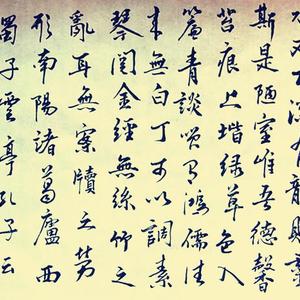 水不在深有龍則靈
斯是陋室惟吾德馨
苔痕上堦綠草色入
簾青談笑有鴻儒往
來無白丁可以調素
琴閱金經無絲竹之
亂耳無案牘之勞
形南陽諸葛廬西
蜀子雲亭孔子云